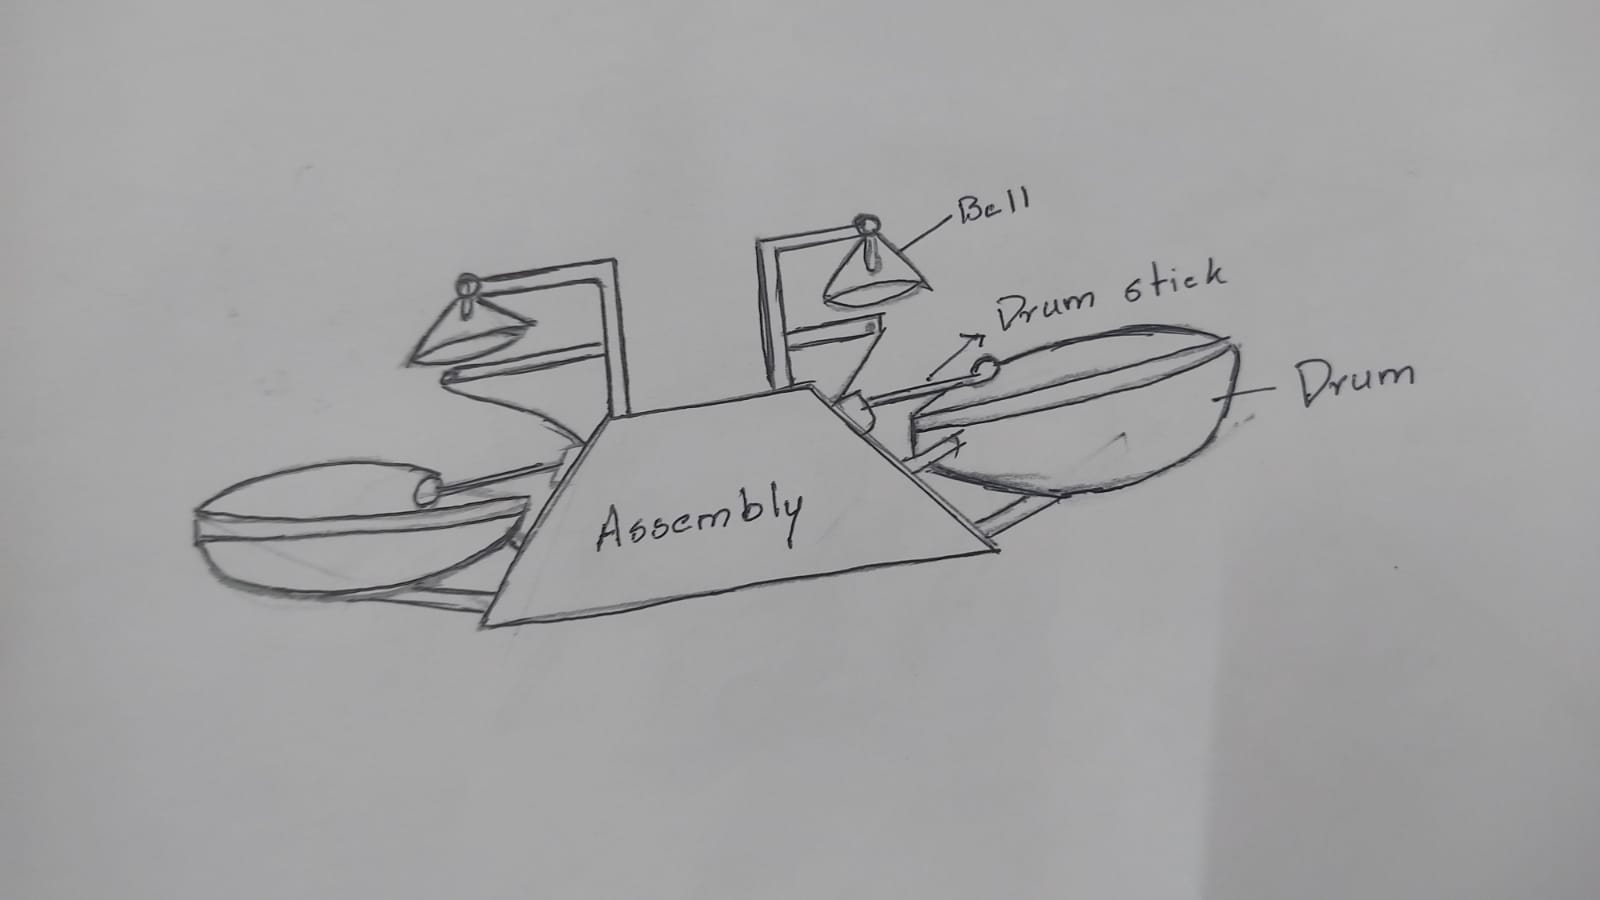 Bell
Drum stick
Drum
Assembly